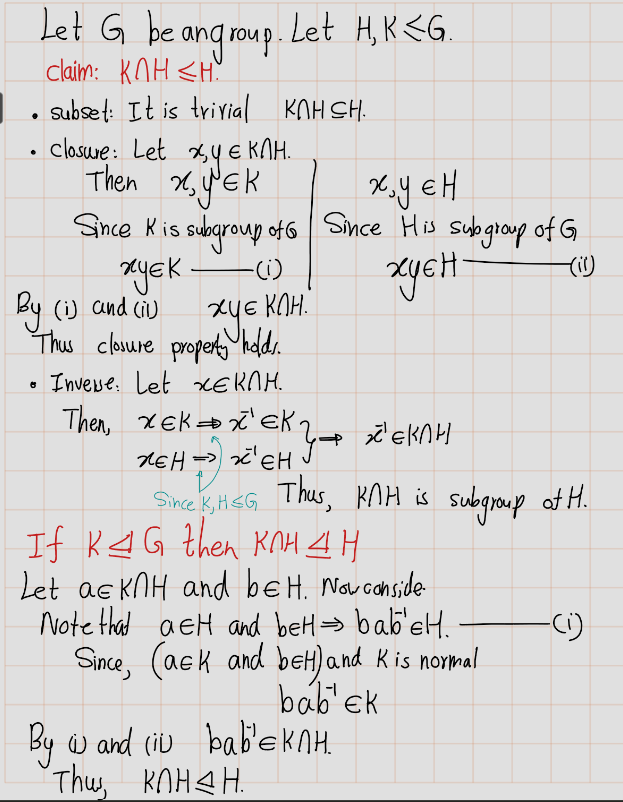 Let G be an group. Let H, K ≤ G.
claim: K∩H ≤ H.
• subset: It is trivial K∩H ⊆ H.
• closure: Let x,y ∈ K∩H.
Then x,y ∈ K
Since K is subgroup of G
xy ∈ K —— (i)
x,y ∈ H
Since H is subgroup of G
xy ∈ H —— (ii)
By (i) and (ii) xy ∈ K∩H.
Thus closure property holds.
• Inverse: Let x ∈ K∩H.
Then, x ∈ K ⇒ x⁻¹ ∈ K } ⇒ x⁻¹ ∈ K∩H
x ∈ H ⇒ x⁻¹ ∈ H
Since K, H ≤ G
Thus, K∩H is subgroup of H.
If K ⊴ G then K∩H ⊴ H
Let a ∈ K∩H and b ∈ H. Now conside
Note that a ∈ H and b ∈ H ⇒ bab⁻¹ ∈ H. —— (i)
Since, (a ∈ K and b ∈ H) and K is normal
bab⁻¹ ∈ K
By (i) and (ii) bab⁻¹ ∈ K∩H.
Thus, K∩H ⊴ H.